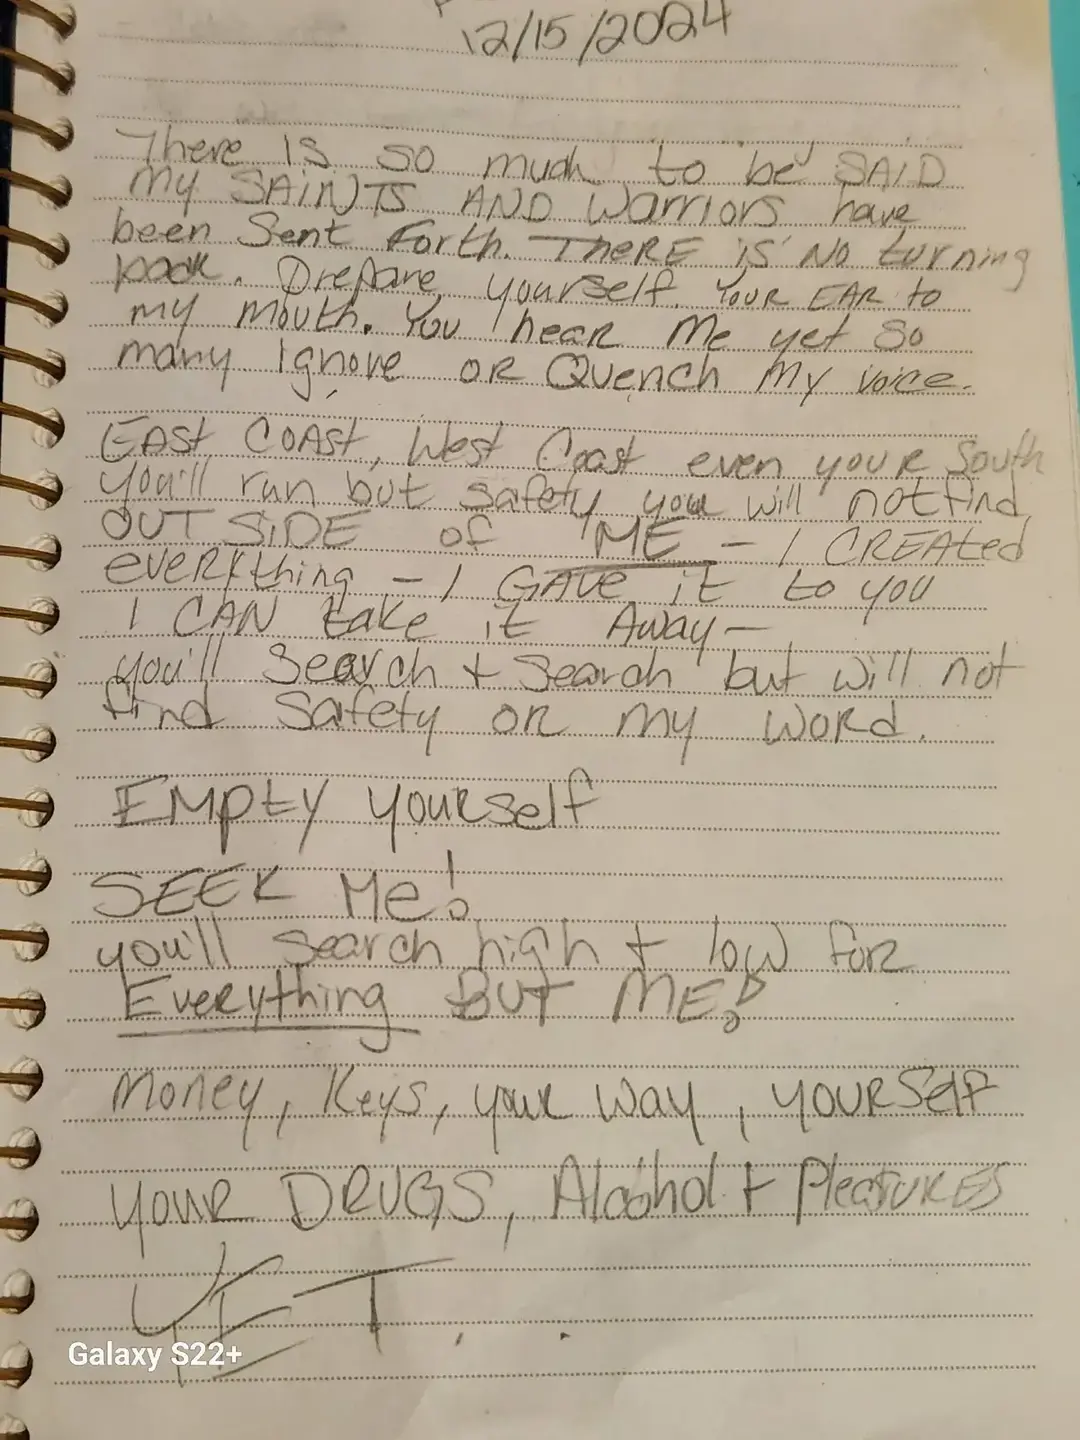 12/15/2024
There is so much to be SAID
my SAINTS AND warriors have
been Sent forth. THERE is NO turning
back. Prepare yourself. YOUR EAR to
my mouth. You hear Me yet So
many Ignore OR Quench My voice.
EAST COAST, West Coast even your South
you'll run but safety you will not find
OUTSIDE of ME - I CREATED
everything - I GAVE it to you
I CAN take it Away -
you'll Search + Search but will not
find Safety OR my WORd.
EMPty yourself
SEEK Me!
you'll Search high + low for
Everything BUT ME!
Money, Keys, your way, YOURSelf
YOUR DRUGS, Alcohol + PleasUREs
YET . .
Galaxy S22+